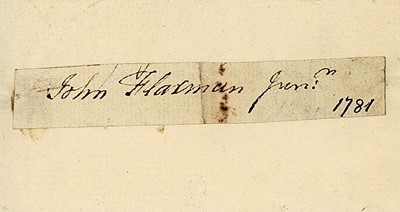 John Flaxman Jun:ʳ
1781